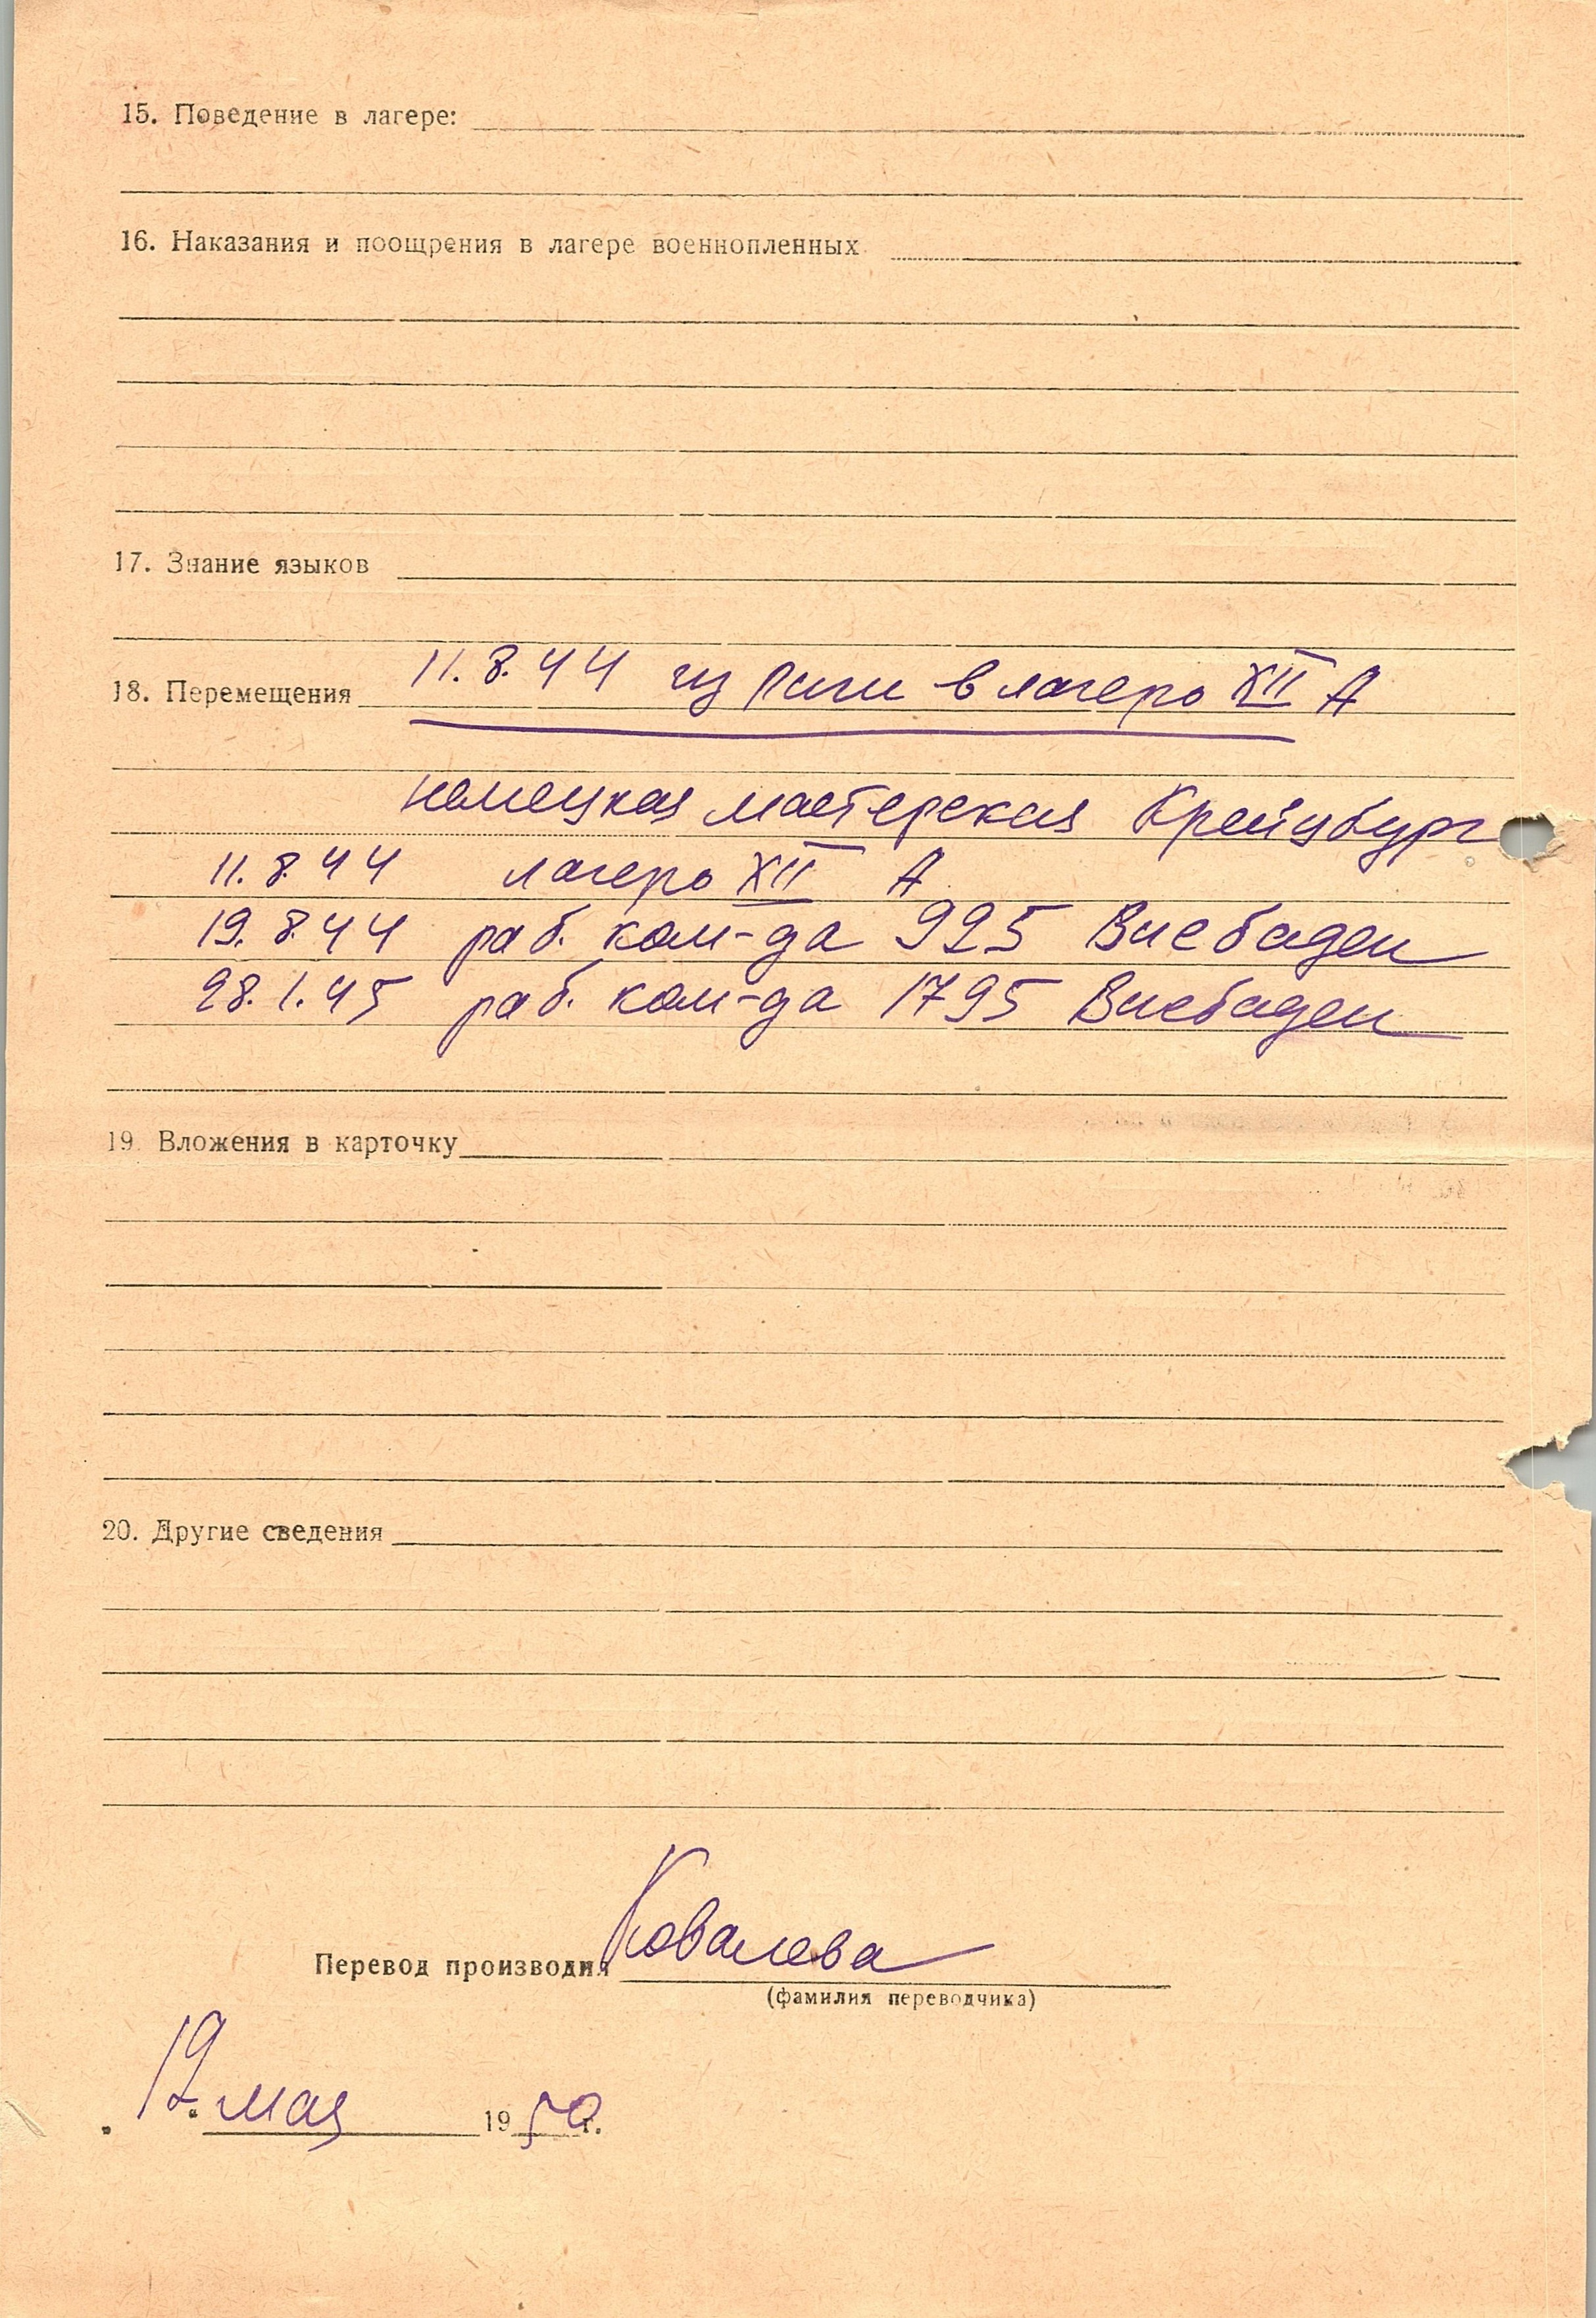 15. Поведение в лагере:
16. Наказания и поощрения в лагере военнопленных
17. Знание языков
11.8.44 из Риги в лагерь XII А
18. Перемещения
немецкая мастерская Крейцбург
11.8.44 лагерь XII А
19.8.44 раб. ком-да 925 Висбаден
28.1.45 раб. ком-да 1795 Висбаден
19. Вложения в карточку
20. Другие сведения
Перевод производил Ковалева
(фамилия переводчика)
19. мая 1950 г.